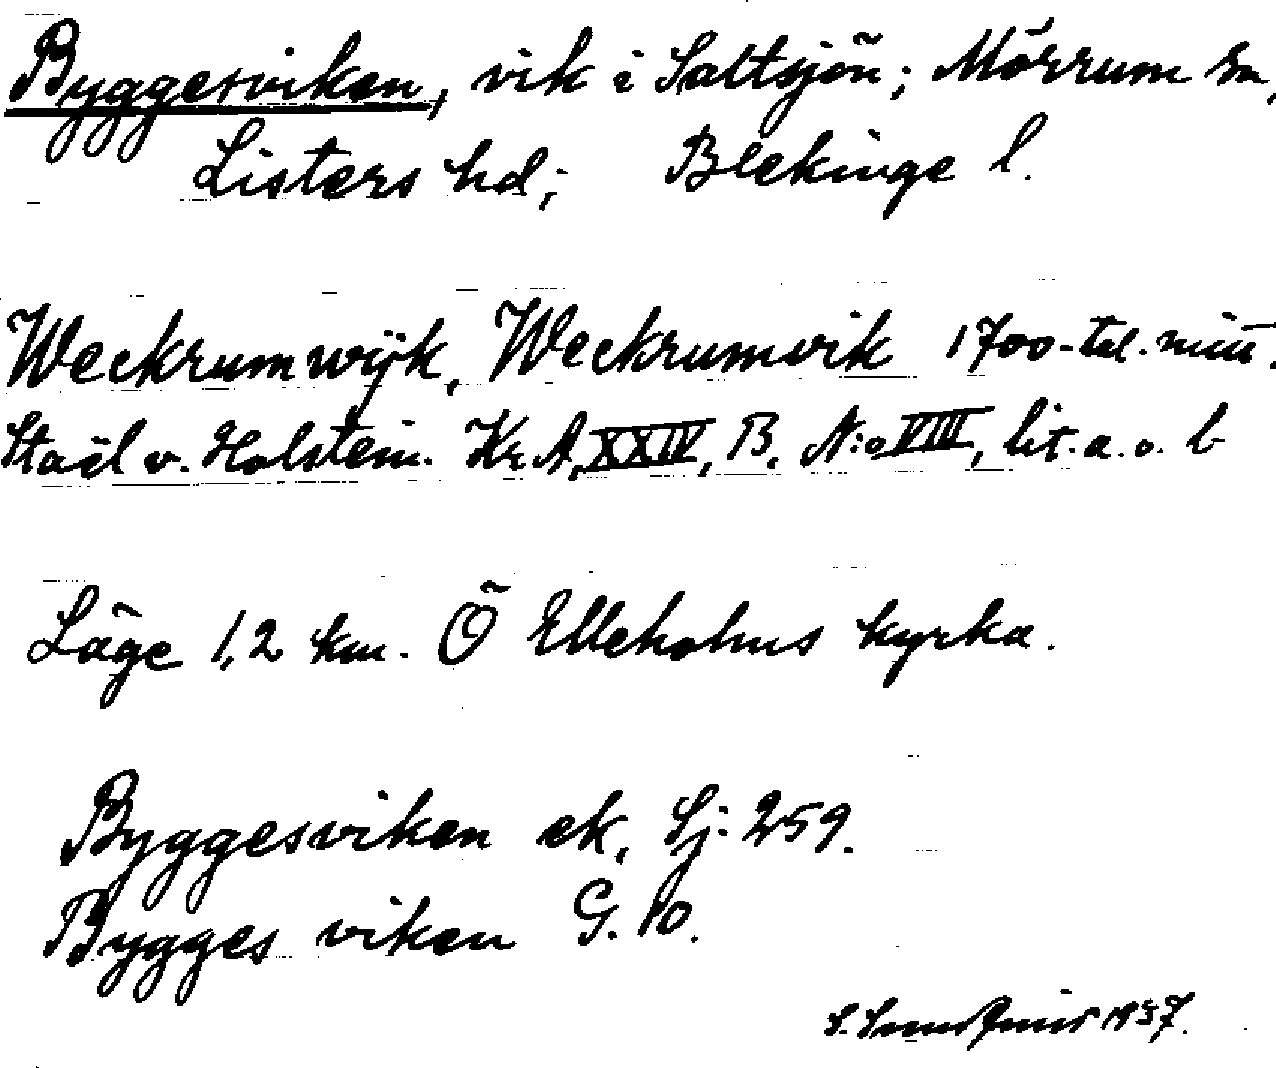 Byggesviken, vik i Saltsjön; Mörrum sn,
Listers hd; Blekinge l.
Weckrumwijk, Weckrumvik 1700-tal. mitt.
Staël v. Holstein. Kr. A, XXIV, B. N:o VIII, lit. a. o. b
Läge 1,2 km. Ö Elleholms kyrka.
Byggesviken ek, Sj. 259.
Bygges viken G. 10.
S. 1937.